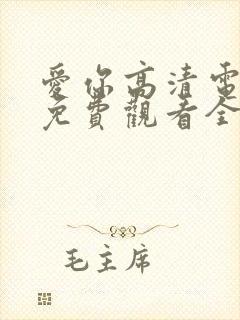 愛你高清電
免費觀看全
毛主席